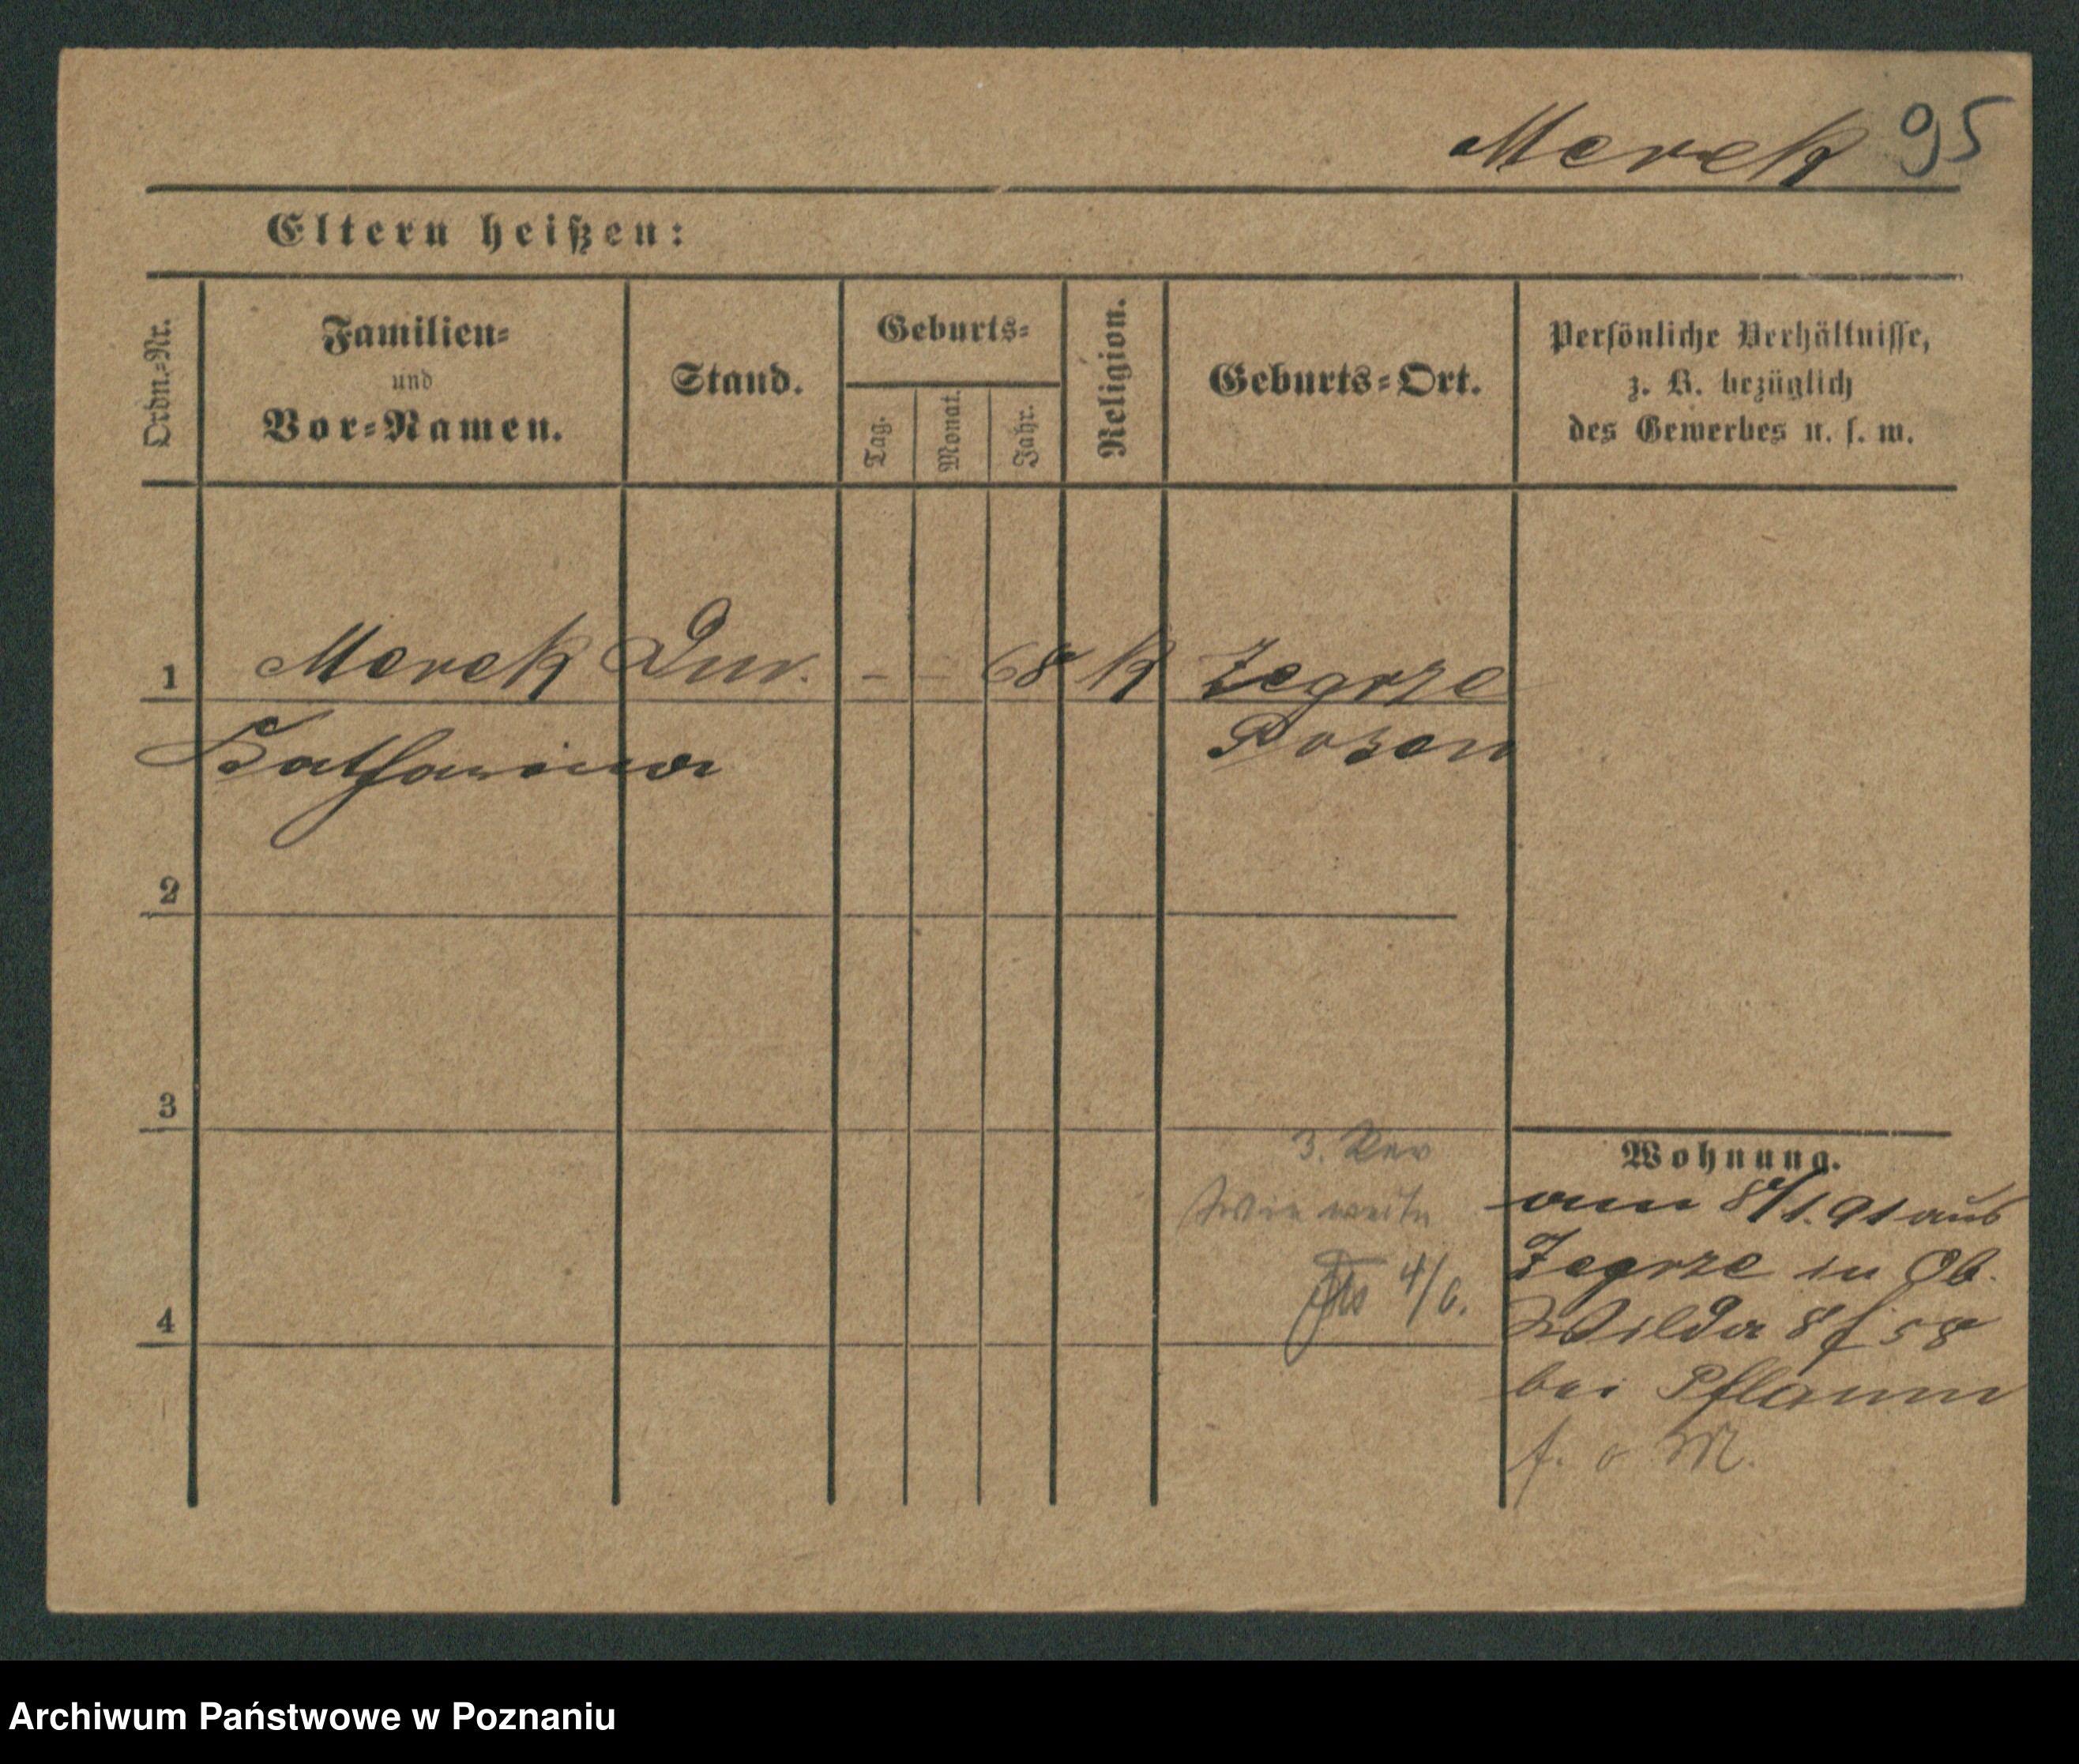 Merek 95
Eltern heißen:
Ordn.-Nr.
Familien-
und
Vor-Namen.
Stand.
Geburts-
Tag.
Monat.
Jahr.
Religion.
Geburts-Ort.
Persönliche Verhältnisse,
z. B. bezüglich
des Gewerbes u. s. w.
1 Merek - - 68 K Zegrze
Katharina Posen
2
3
3. Rev
4/6.
4
Wohnung.
am 8/1. 91 aus
Zegrze in Ob.
Wilda 8 f 58
bei Pflaum
f. o M.
Archiwum Państwowe w Poznaniu